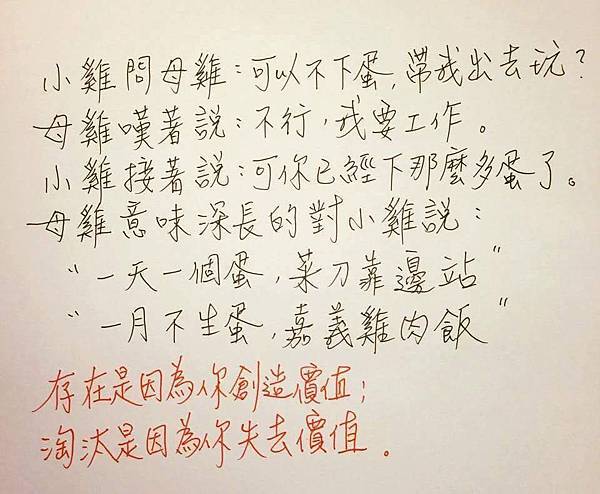 小雞問母雞：可以不下蛋，帶我出去玩？
母雞嘆著說：不行，我要工作。
小雞接著說：可你已經下那麼多蛋了。
母雞意味深長的對小雞說：
“一天一個蛋，菜刀靠邊站”
“一月不生蛋，嘉義雞肉飯”
存在是因為你創造價值；
淘汰是因為你失去價值。